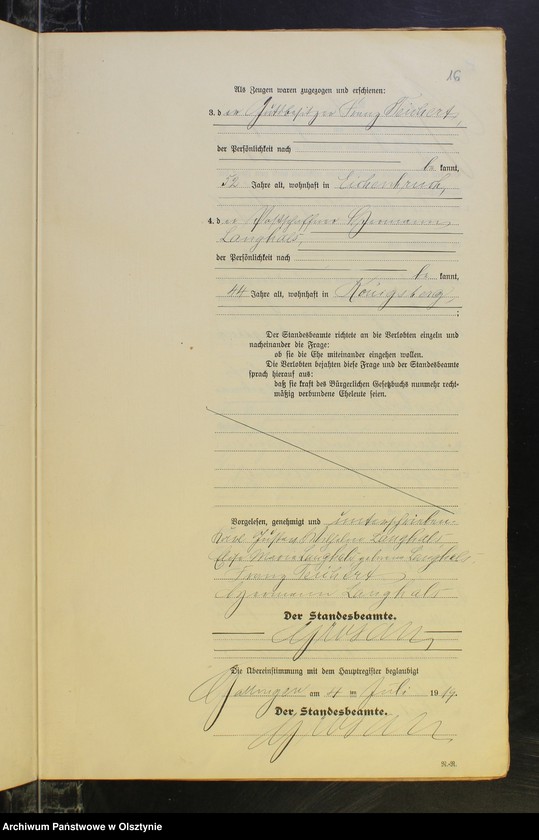 16
Als Zeugen waren zugezogen und erschienen:
3. d er Gutsbesitzer Franz
der Persönlichkeit nach
be kannt,
52 Jahre alt, wohnhaft in Eichenbruch,
4. d er Postschaffner Hermann
Langhals,
der Persönlichkeit nach
be kannt,
44 Jahre alt, wohnhaft in Königsberg
;
Der Standesbeamte richtete an die Verlobten einzeln und
nacheinander die Frage:
ob sie die Ehe miteinander eingehen wollen.
Die Verlobten bejahten diese Frage und der Standesbeamte
sprach hierauf aus:
daß sie kraft des Bürgerlichen Gesetzbuchs nunmehr recht-
mäßig verbundene Eheleute seien.
Vorgelesen, genehmigt und unterschrieben
Karl Gustav Langhals
Maria Langhals geborene Langhals
Franz
Hermann Langhals
Der Standesbeamte.
Die Übereinstimmung mit dem Hauptregister beglaubigt
am 4 ten Juli 19 19.
Der Standesbeamte.
R.-R.
Archiwum Państwowe w Olsztynie